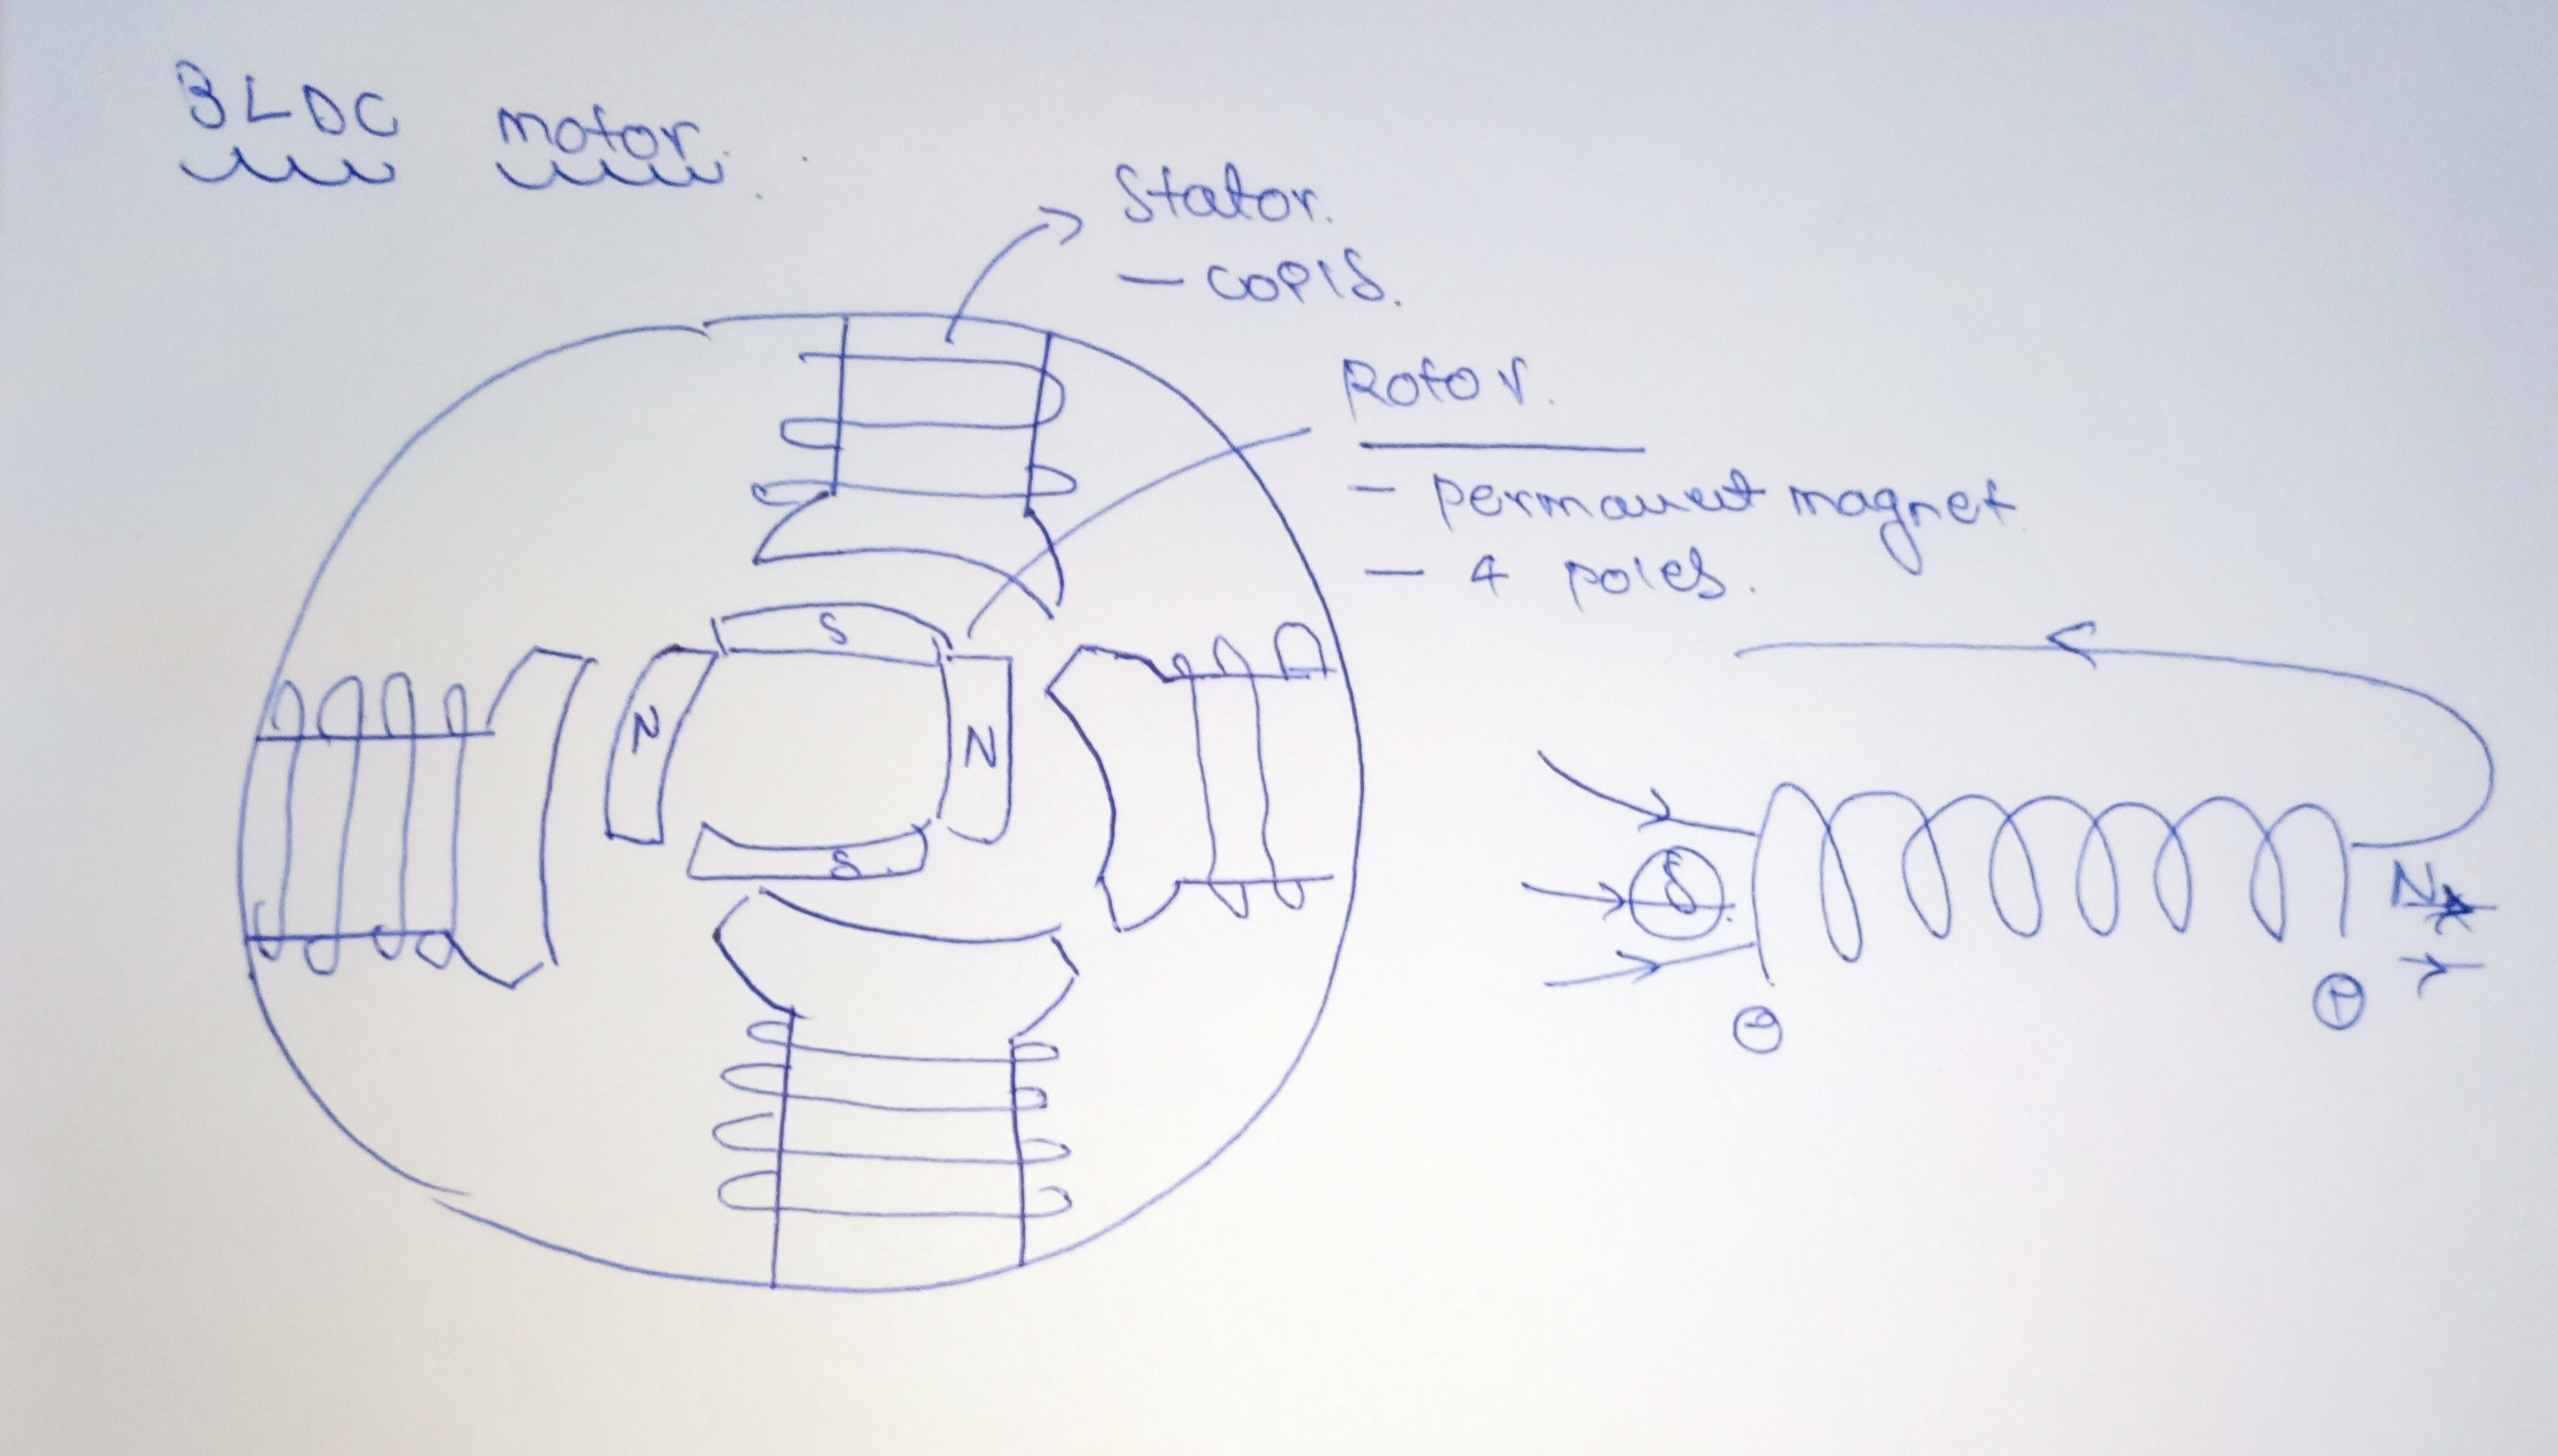 BLDC motor.
Stator.
- coils.
Rotor.
- permanent magnet
- 4 poles.
S
N
N
S
S
N
⊖
⊕